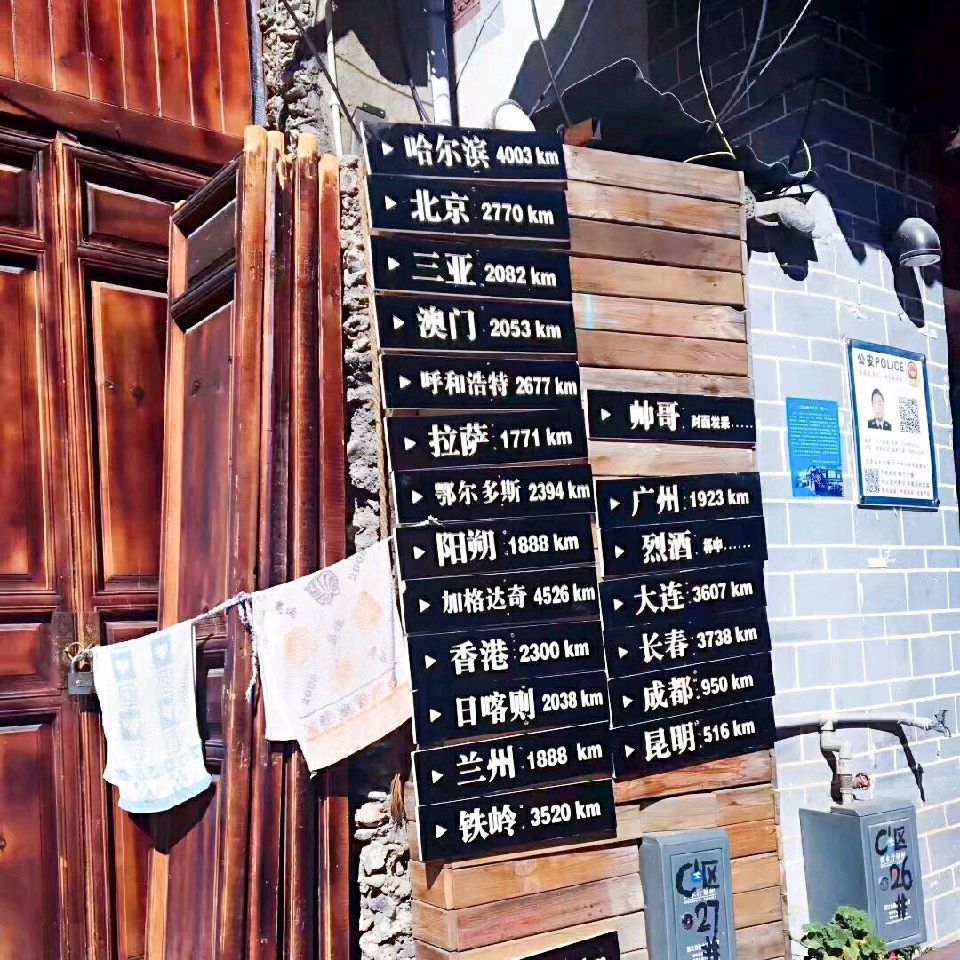 哈尔滨 4003 km
北京 2770 km
三亚 2082 km
澳门 2053 km
呼和浩特 2677 km
拉萨 1771 km
鄂尔多斯 2394 km
阳朔 1888 km
加格达奇 4526 km
香港 2300 km
日喀则 2038 km
兰州 1888 km
铁岭 3520 km
帅哥 对面发呆......
广州 1923 km
烈酒 都中......
大连 3607 km
长春 3738 km
成都 950 km
昆明 516 km
公安POLICE
2000
2000
C区
27
C区
26